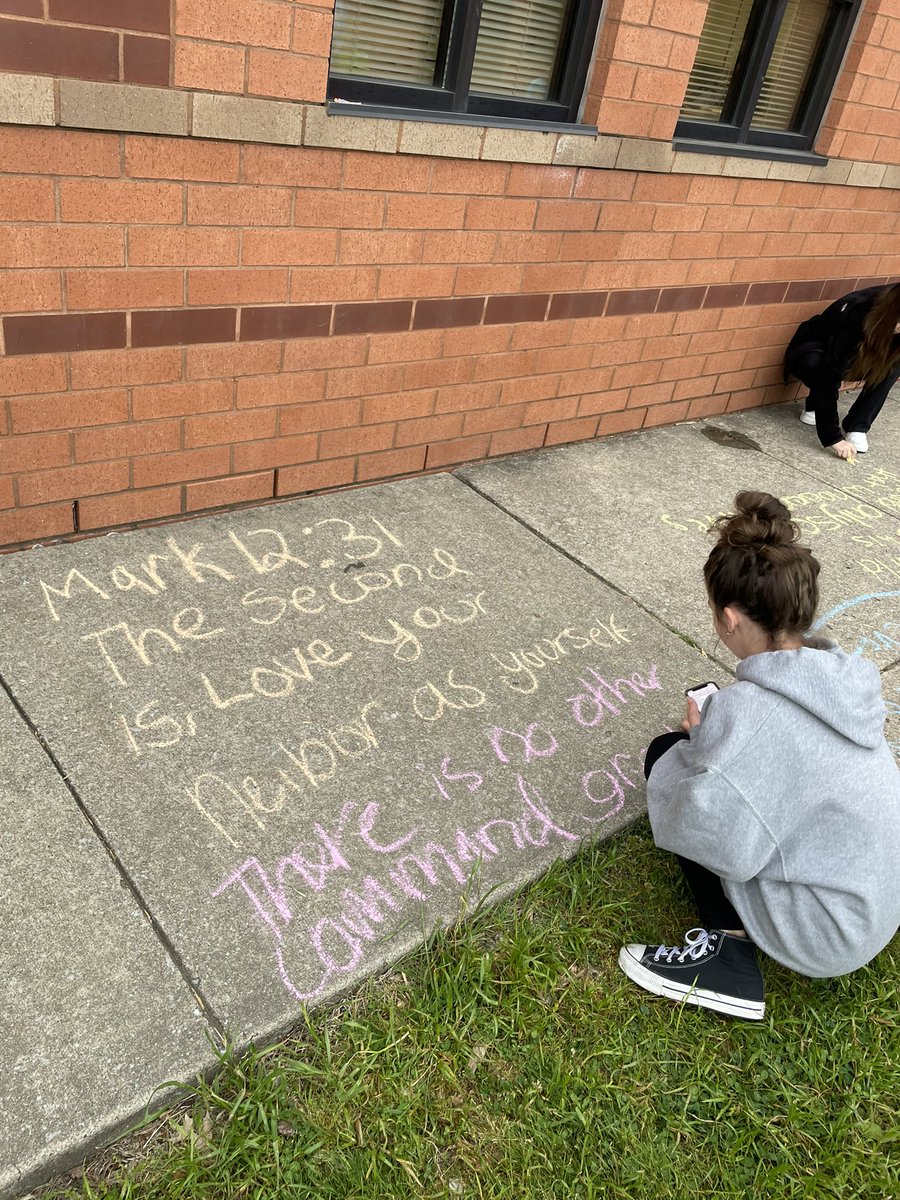 Mark 12:31
The second
is, Love your
Neibor as yourself
There is no other
command gr